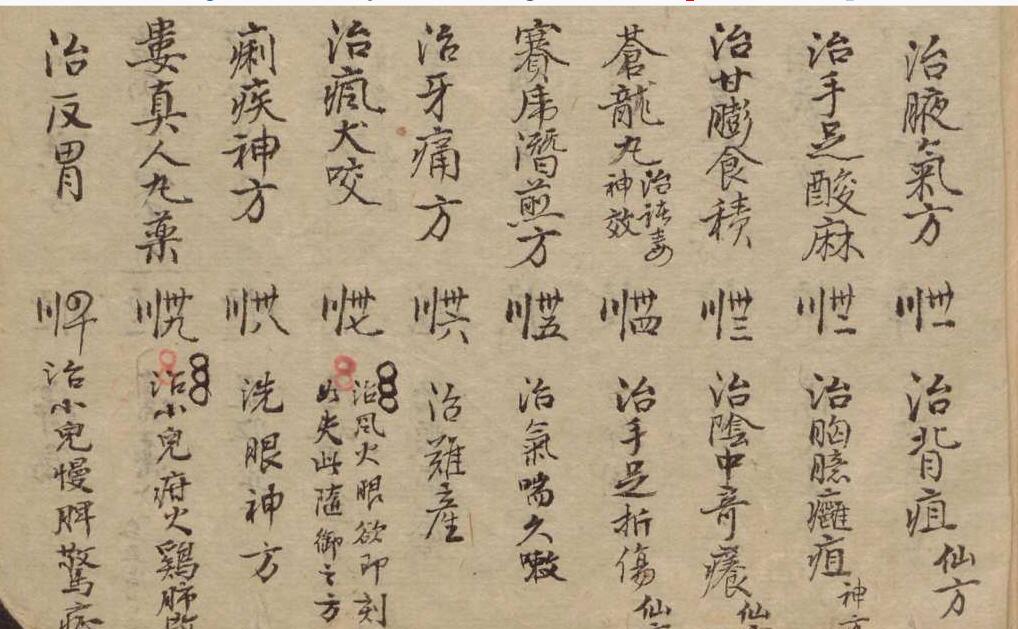 治腋氣方
川卅一
治背疽仙方
治手足酸麻
川卅二
治胸臆癰疽神方
治甘膨食積
川卅三
治陰中奇癢仙
蒼龍丸治諸毒神效
川卅四
治手足折傷仙
賽焦潛煎方
川卅五
治氣喘久嗽
治牙痛方
川卅六
治難產
治瘋犬咬
川卅七
治風火眼欲即刻
必失此隨御之方
痢疾神方
川卅八
洗眼神方
婁真人丸藥
川卅九
治小兒疳火鷄肺
治反胃
川四十
治小兒慢脾驚